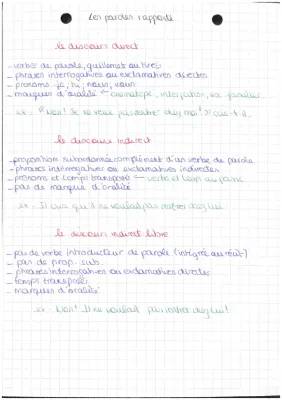 Les paroles rapportées
le discours direct
- verbe de parole, guillemets ou tirets
- phrases interrogatives ou exclamatives directes
- pronoms je, tu, nous, vous
- marques d'oralité ← onomatopée, interjection, familier
ex - "Non! Je ne veux pas rentrer chez moi!" -t-il.
le discours indirect
- proposition subordonnée complément d'un verbe de parole
- phrases interrogatives ou exclamatives indirectes
- pronoms et temps transposés ← verbe et temps au passé
- pas de marque d'oralité
ex - Il qu'il ne voulait pas rentrer chez lui
le discours indirect libre
- pas de verbe introducteur de parole (intégré au récit)
- pas de prop. sub.
- phrases interrogatives ou exclamatives directes
- temps transposés
- marques d'oralité
ex - Non! Il ne voulait pas rentrer chez lui!